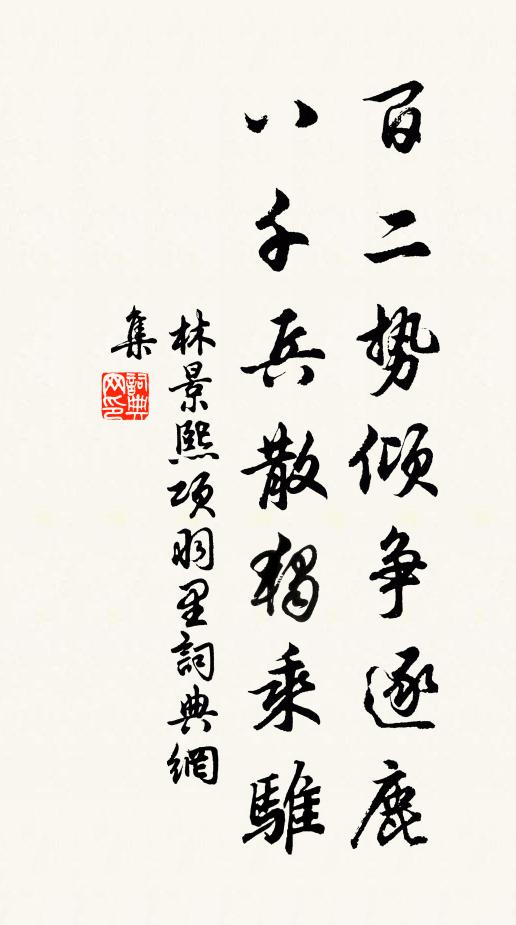 百二势倾争逐鹿
八千兵散独乘骓
林景熙项羽里詞典網
集
詞典网印